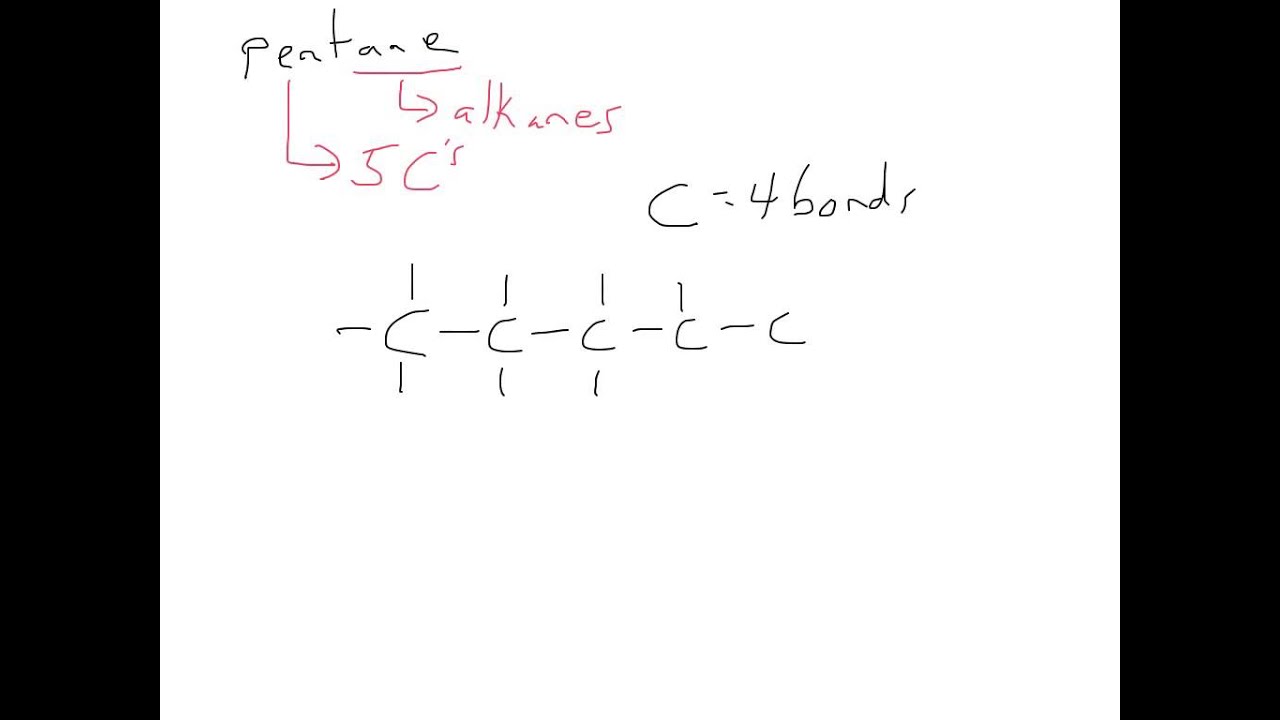 pentane
↳ alkanes
↳ 5 C's
C = 4 bonds
– C – C – C – C – C